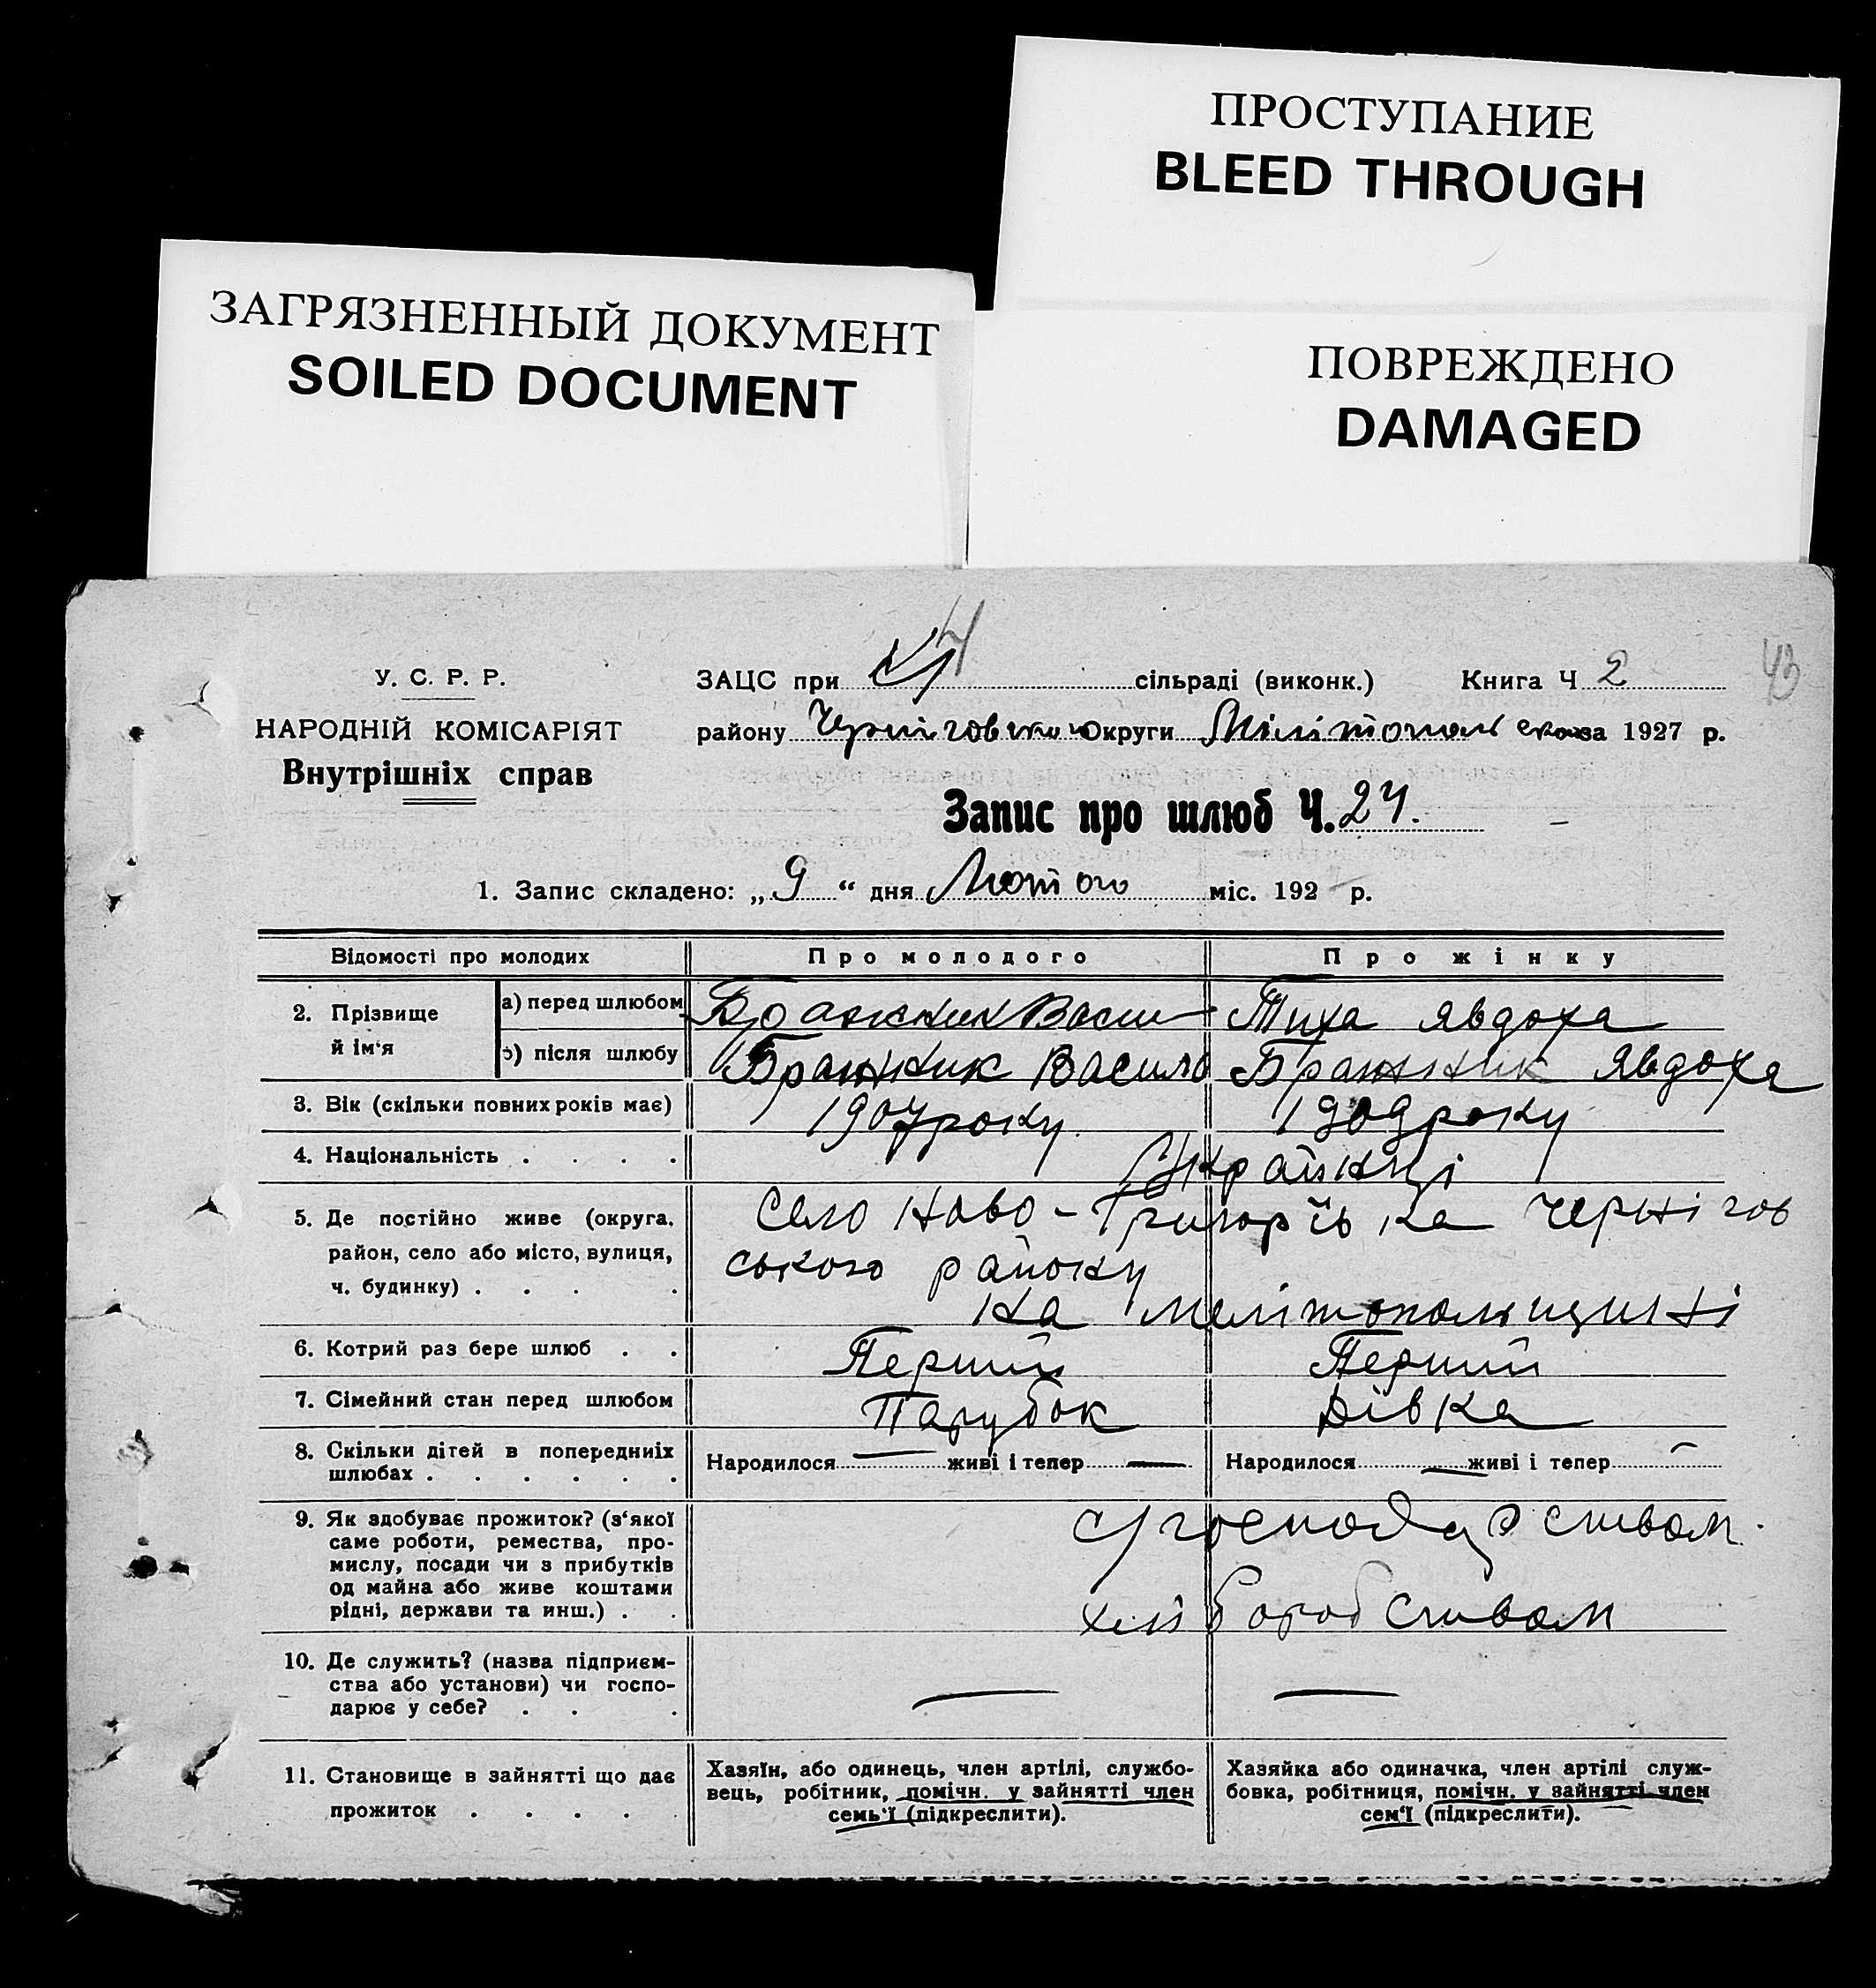 ПРОСТУПАНИЕ
BLEED THROUGH
ЗАГРЯЗНЕННЫЙ ДОКУМЕНТ
SOILED DOCUMENT
ПОВРЕЖДЕНО
DAMAGED
43
У. С. Р. Р.
НАРОДНІЙ КОМІСАРІЯТ
Внутрішніх справ
ЗАЦС при сільраді (виконк.) Книга Ч 2
району Чернігівського Округи Мелітопольська за 1927 р.
Запис про шлюб Ч. 24.
1. Запис складено: „ 9 “ дня Лютого міс. 192 р.
Відомості про молодих Про молодого Про жінку
2. Прізвище й ім‘я
а) перед шлюбом Бражник Васи Тиха Явдоха
б) після шлюбу Бражник Василь Бражник Явдоха
3. Вік (скільки повних років має) 1907 року. 1909 року
4. Національність . . . . Українці
5. Де постійно живе (округа, Село Ново-Григорївка Чернігов
район, село або місто, вулиця, ського району
ч. будинку) . . . . на Мелітопольщині
6. Котрий раз бере шлюб . . Перший Перший
7. Сімейний стан перед шлюбом Парубок Дівка
8. Скільки дітей в попередниіх
шлюбах . . . . . . Народилося — живі і тепер — Народилося — живі і тепер —
9. Як здобуває прожиток? (з‘якої
саме роботи, ремества, про-
мислу, посади чи з прибутків
од майна або живе коштами
рідні, держави та инш.) . .
С/господарством.
хліборобством
10. Де служить? (назва підприєм-
ства або установи) чи госпо-
дарює у себе? . . . — —
11. Становище в зайнятті що дає
прожиток . . . . .
Хазяїн, або одинець, член артілі, службо-
вець, робітник, помічн. у зайнятті член
семь‘ї (підкреслити).
Хазяйка або одиначка, член артілі служ-
бовка, робітниця, помічн. у зайнятті член
сем‘ї (підкреслити).